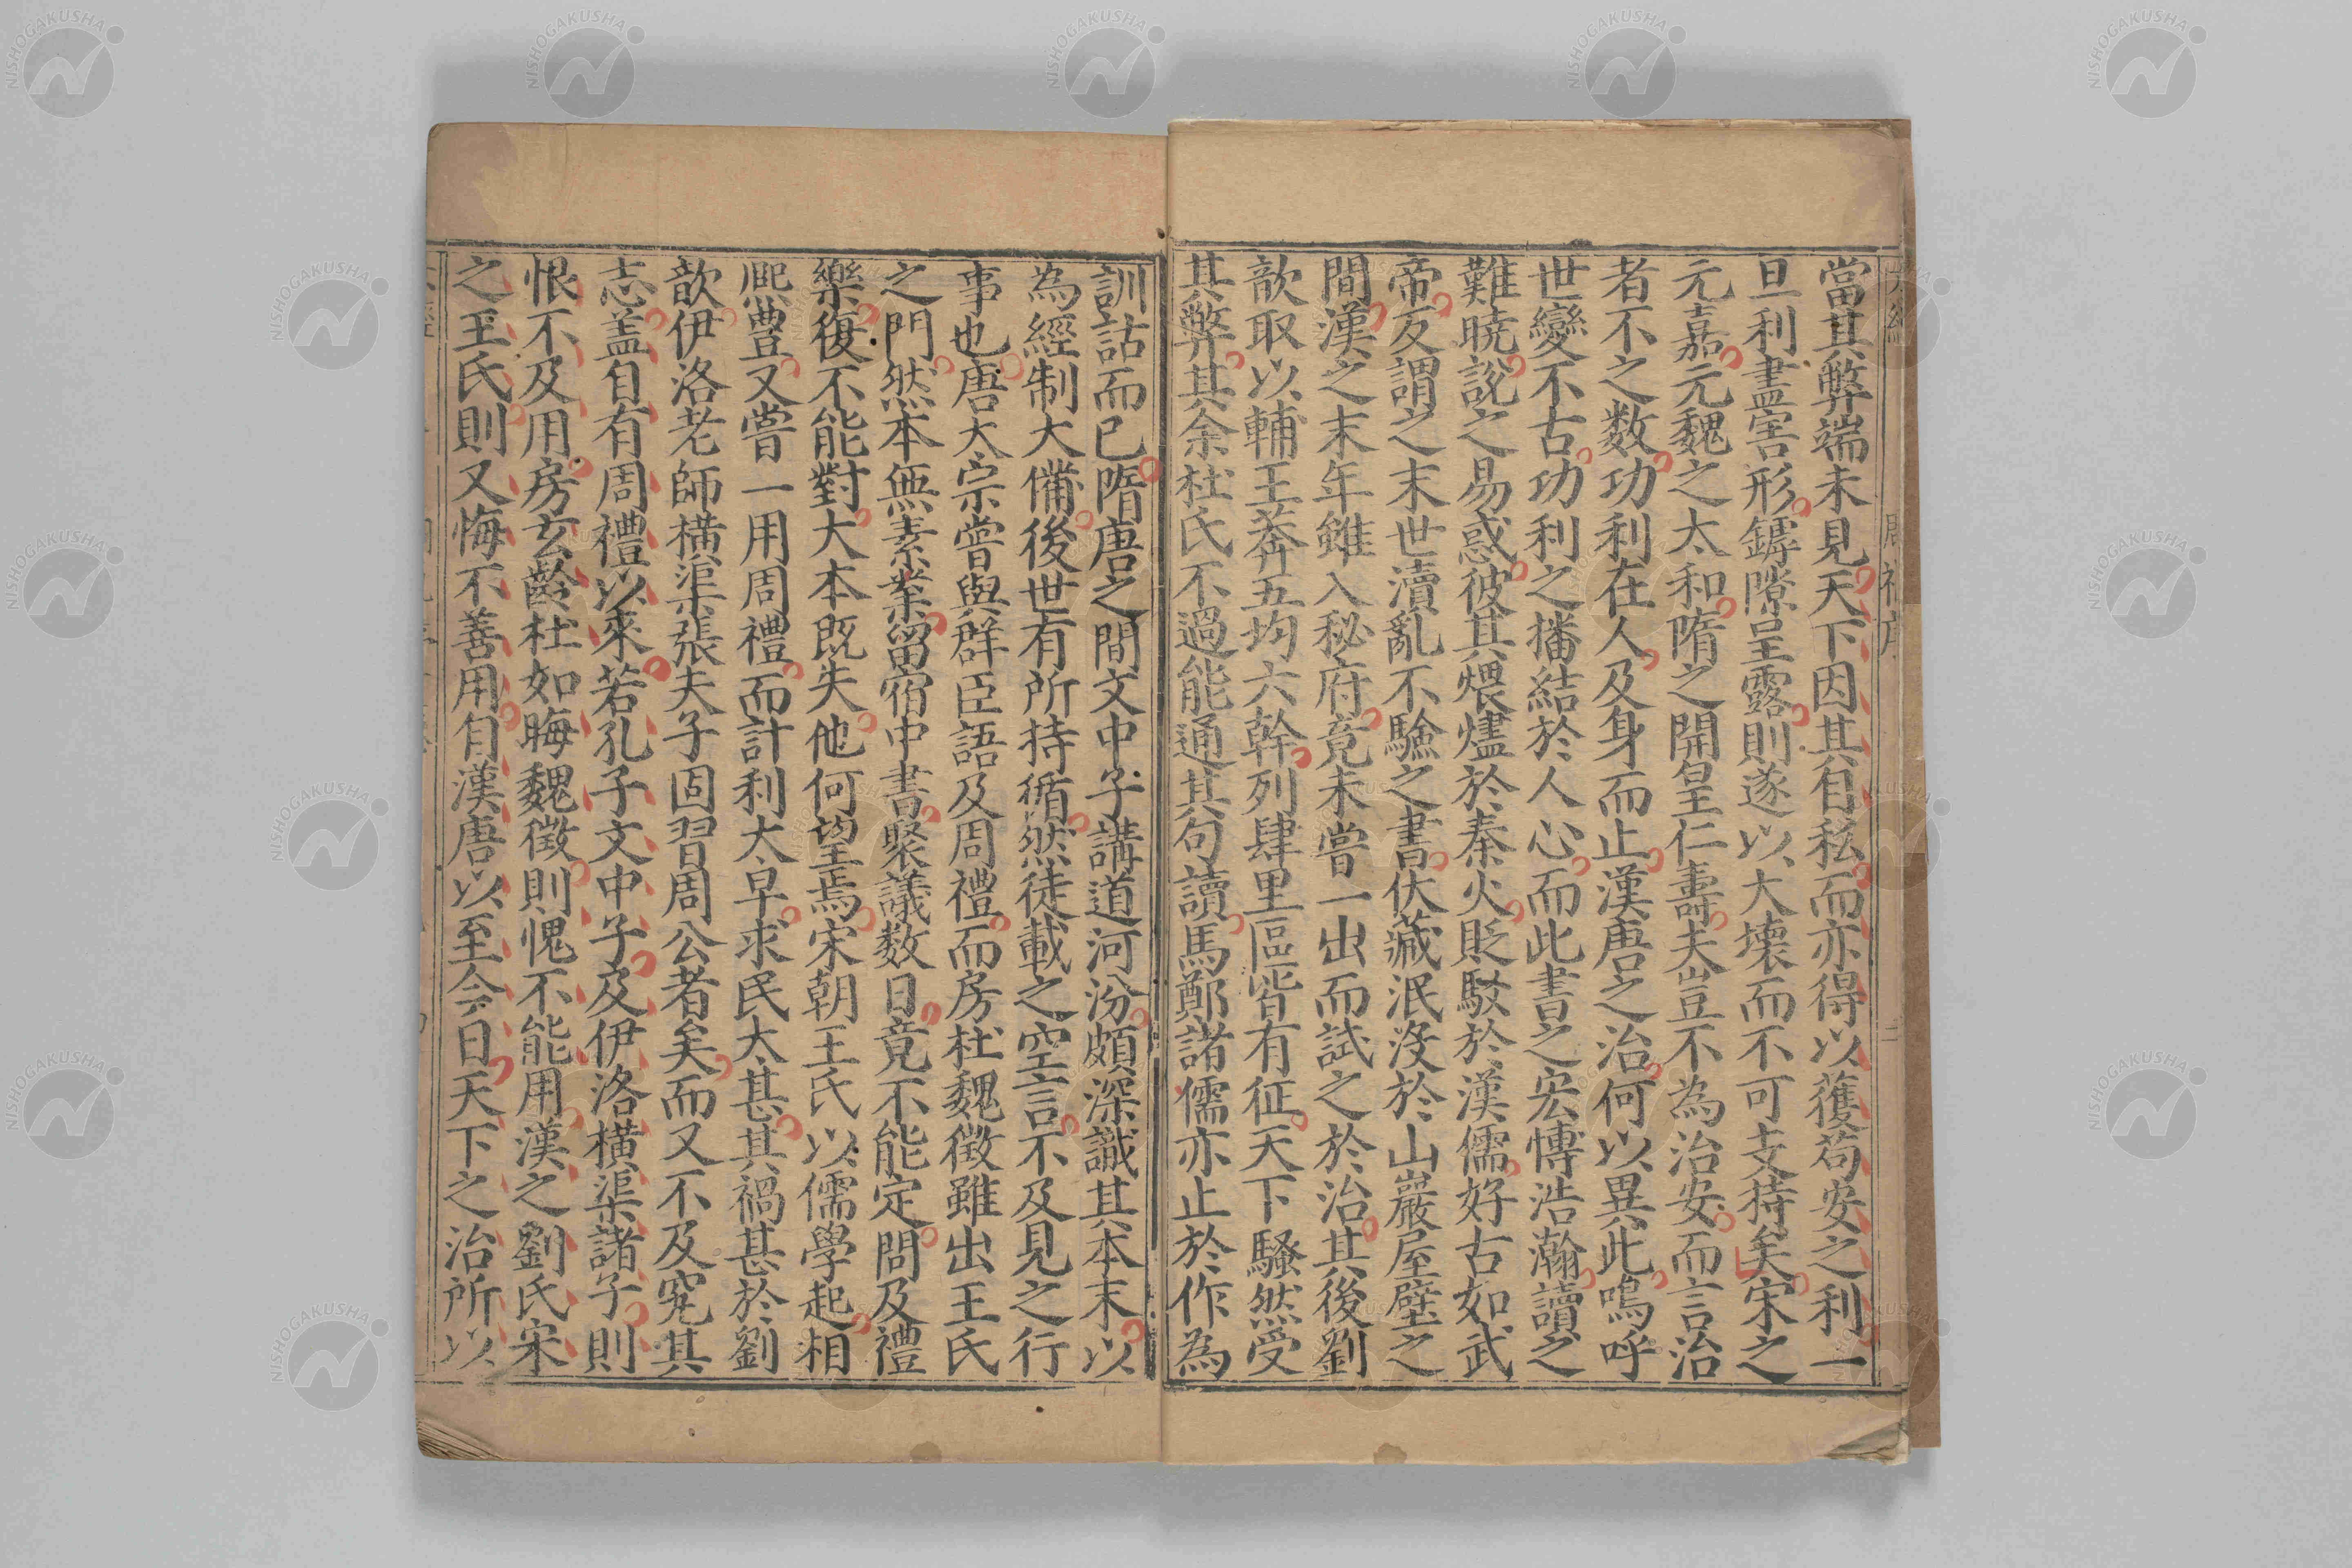 當其弊端未見天下因其自私而亦得以獲苟安之利一
旦利盡害形罅隙呈露則遂以大壞而不可支持矣宋之
元嘉元魏之太和隋之開皇仁壽夫豈不為治安而言治
者不之数功利在人及身而止漢唐之治何以異此嗚呼
世變不古功利之播結於人心而此書之宏愽浩瀚讀之
難曉説之易惑彼其煨燼於秦火貶駁於漢儒好古如武
帝反謂之末世瀆亂不驗之書伏藏泯沒於山巖屋壁之
間漢之末年雖入秘府竟未嘗一出而試之於治其後劉
歆取以輔王莽五均六幹列肆里區皆有征天下騷然受
其弊其余杜氏不過能通其句讀馬鄭諸儒亦止於作為
訓詁而已隋唐之間文中子講道河汾頗深識其本末以
為經制大備後世有所持循然徒載之空言不及見之行
事也唐太宗嘗與群臣語及周禮而房杜魏徵雖出王氏
之門然本無素業留宿中書聚議数日竟不能定問及禮
樂復不能對大本既失他何望焉宋朝王氏以儒學起相
熈豊又嘗一用周禮而計利大早求民大甚其禍甚於劉
歆伊洛老師橫渠張夫子固習周公者矣而又不及究其
志盖自有周禮以來若孔子文中子及伊洛橫渠諸子則
恨不及用房玄齡杜如晦魏徵則愧不能用漢之劉氏宋
之王氏則又悔不善用自漢唐以至今日天下之治所以
NISHOGAKUSHA